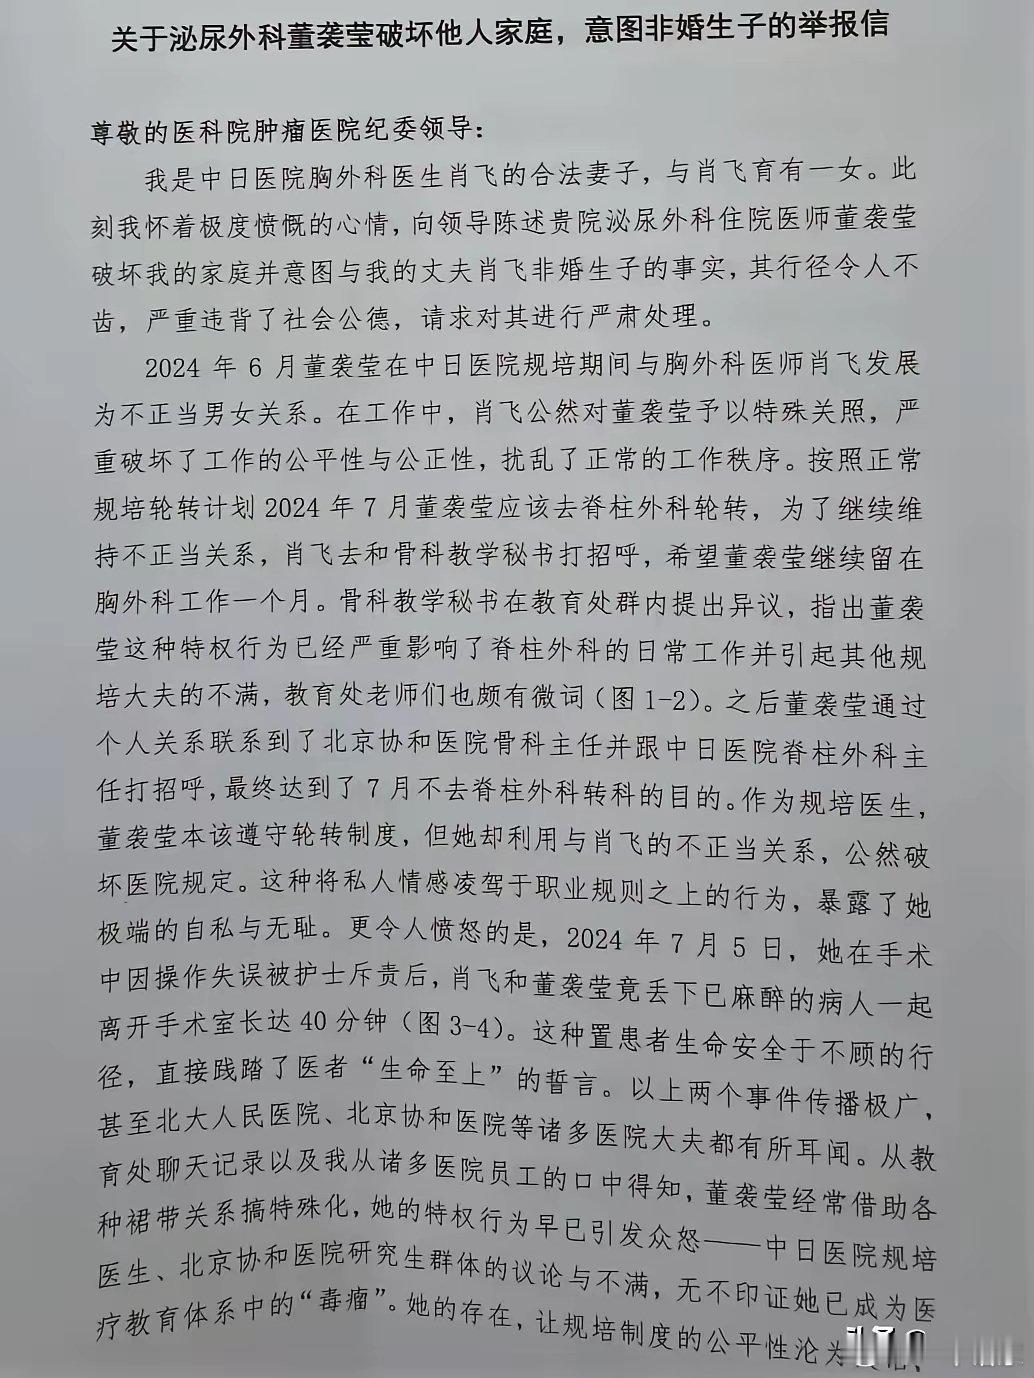 关于泌尿外科董袭莹破坏他人家庭，意图非婚生子的举报信
尊敬的医科院肿瘤医院纪委领导：
我是中日医院胸外科医生肖飞的合法妻子，与肖飞育有一女。此
刻我怀着极度愤慨的心情，向领导陈述贵院泌尿外科住院医师董袭莹
破坏我的家庭并意图与我的丈夫肖飞非婚生子的事实，其行径令人不
齿，严重违背了社会公德，请求对其进行严肃处理。
2024 年 6 月董袭莹在中日医院规培期间与胸外科医师肖飞发展
为不正当男女关系。在工作中，肖飞公然对董袭莹予以特殊关照，严
重破坏了工作的公平性与公正性，扰乱了正常的工作秩序。按照正常
规培轮转计划 2024 年 7 月董袭莹应该去脊柱外科轮转，为了继续维
持不正当关系，肖飞去和骨科教学秘书打招呼，希望董袭莹继续留在
胸外科工作一个月。骨科教学秘书在教育处群内提出异议，指出董袭
莹这种特权行为已经严重影响了脊柱外科的日常工作并引起其他规
培大夫的不满，教育处老师们也颇有微词（图 1-2）。之后董袭莹通过
个人关系联系到了北京协和医院骨科主任并跟中日医院脊柱外科主
任打招呼，最终达到了 7 月不去脊柱外科转科的目的。作为规培医生，
董袭莹本该遵守轮转制度，但她却利用与肖飞的不正当关系，公然破
坏医院规定。这种将私人情感凌驾于职业规则之上的行为，暴露了她
极端的自私与无耻。更令人愤怒的是，2024 年 7 月 5 日，她在手术
中因操作失误被护士斥责后，肖飞和董袭莹竟丢下已麻醉的病人一起
离开手术室长达 40 分钟（图 3-4）。这种置患者生命安全于不顾的行
径，直接践踏了医者“生命至上”的誓言。以上两个事件传播极广，
甚至北大人民医院、北京协和医院等诸多医院大夫都有所耳闻。从教
育处聊天记录以及我从诸多医院员工的口中得知，董袭莹经常借助各
种裙带关系搞特殊化，她的特权行为早已引发众怒——中日医院规培
医生、北京协和医院研究生群体的议论与不满，无不印证她已成为医
疗教育体系中的“毒瘤”。她的存在，让规培制度的公平性沦为